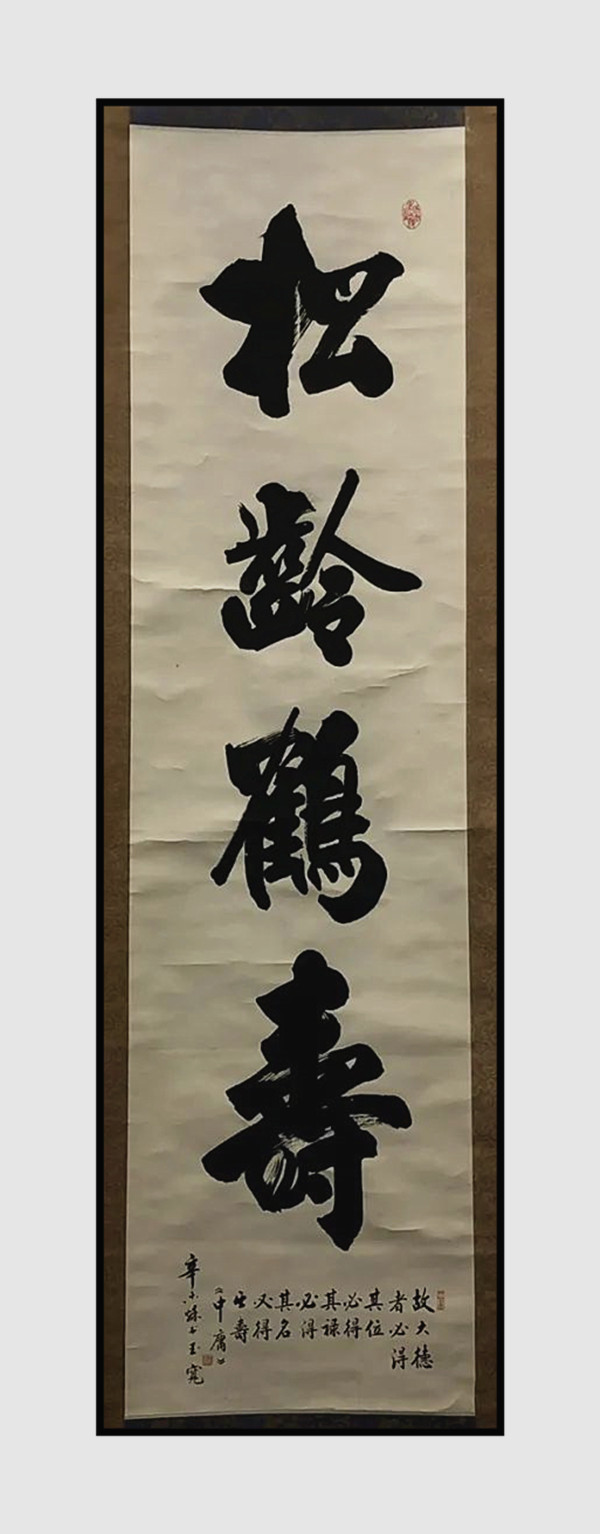 松齡鶴壽
故大德
者必得
其位
必得
其禄
必得
其名
必得
其壽
中庸